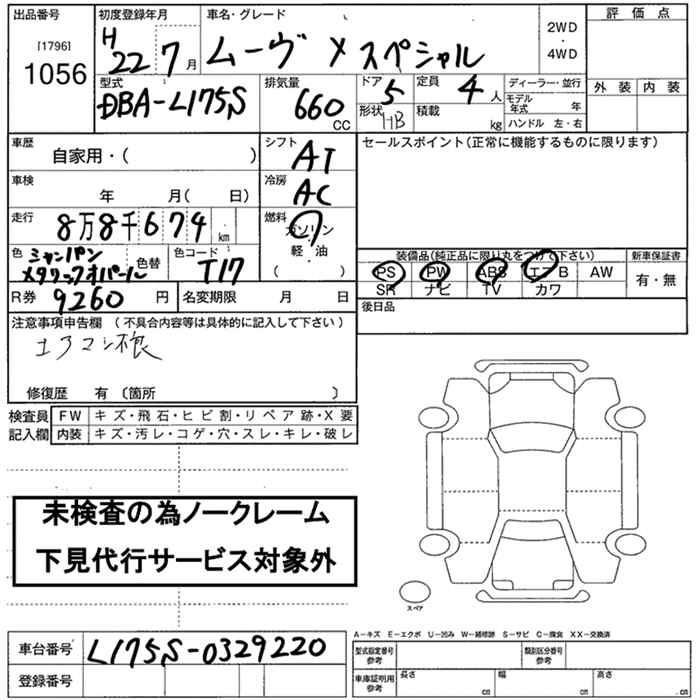 出品番号 初度登録年月 車名・グレード 評価点
[1796] 1056 H22 7月 ムーヴ X スペシャル 2WD・4WD
外装 内装
型式 排気量 ドア 定員 ディーラー・並行
DBA-L175S 660CC 5 4人 モデル年式 年
形状 HB 積載 kg ハンドル 左・右
車歴 自家用・( ) シフト AT セールスポイント(正常に機能するものに限ります)
車検 年 月( 日) 冷房 AC
走行 8万8千674km 燃料 ガソリン 軽・油 ( )
色 シャンパンメタリックオパール 色替 色コード T17 装備品(純正品に限り丸をつけて下さい) 新車保証書
PS PW ABS エアB AW 有・無
SR ナビ TV カワ
R券 9260円 名変期限 月 日 後日品
注意事項申告欄 (不具合内容等は具体的に記入して下さい)
修復歴 有 〔箇所 〕
検査員記入欄 FW キズ・飛石・ヒビ割・リペア跡・X要
内装 キズ・汚レ・コゲ・穴・スレ・キレ・破レ
未検査の為ノークレーム
下見代行サービス対象外
スペア
A-キズ E-エクボ U-凹み W-補修跡 S-サビ C-腐食 XX-交換済
車台番号 L175S-0329220 型式指定番号 参考 類別区分番号 参考
登録番号 車庫証明用 参考 長さ cm 幅 cm 高さ cm